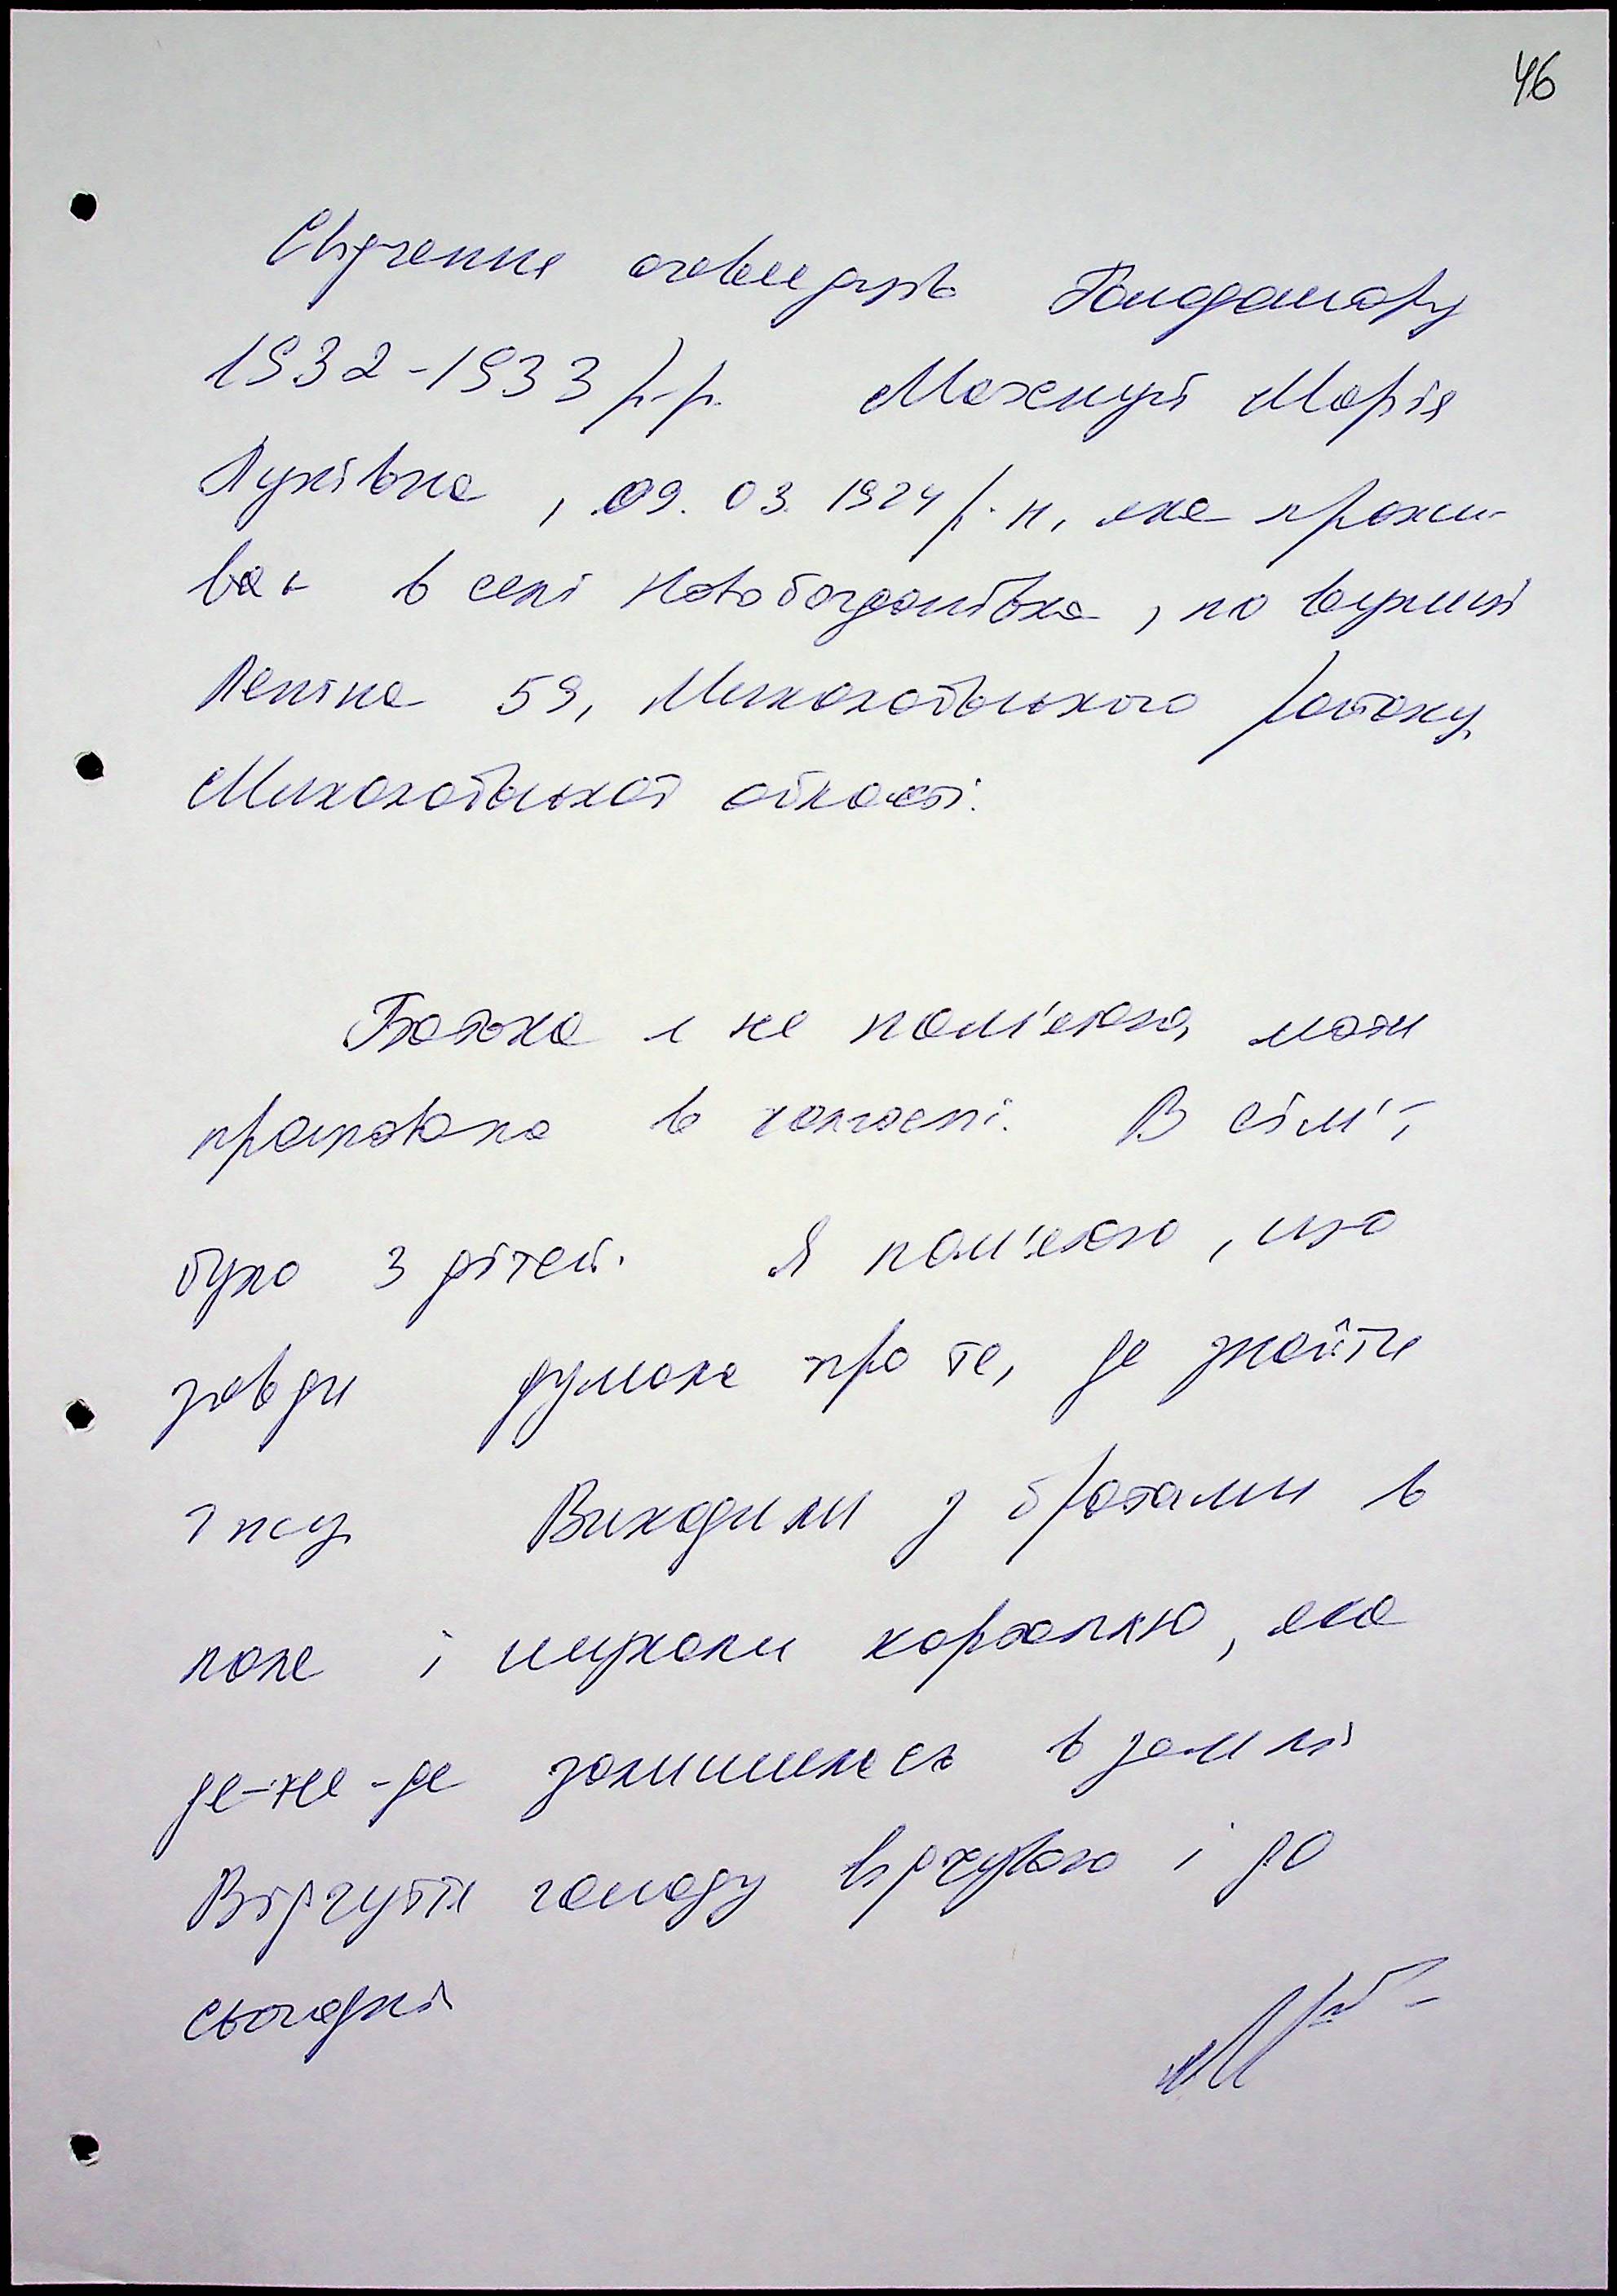 46
Свідчення очевидців Голодомору
1932-1933 р.р. Махнуші Марія
Луківна, 09.03.1924 р.н, яка прожи-
ває в селі Новобогданівка, по вулиці
Леніна 59, Миколаївського району,
Миколаївської області.
Батька я не пам'ятаю, мати
працювала в колгоспі. В сім'ї
було 3 дітей. Я пам'ятаю, що
завди думала про те, де знайти
їжу. Виходили з братами в
поле і шукали картоплю, яка
де-не-де залишилась в землі
Відчуття голоду відчуваю і до
сьогодні